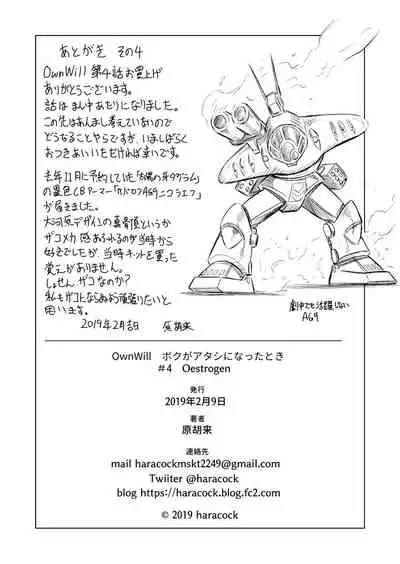 あとがき その4
OwnWill 第4話お買上げ
ありがとうございます。
話はまん中あたりになりました。
この先はあんまし考えていないので
どうなることやらですが、いましばらく
おつきあいいただければ幸いです。
去年11月に予約していた「太陽の牙ダグラム」
の
CBアーマー「
ニコラエフ」
が届きました。
大河原デザインの真骨頂というか
ザコメカ感あふれるのが当時から
好きでしたが、当時キットを買った
覚えがありません。
しょせんザコなのか?
私もザコにならぬよう頑張りたいと
思います。
2019年2月吉日 原胡来
劇中でも活躍しない
OwnWill ボクがアタシになったとき
#4 Oestrogen
発行
2019年2月9日
著者
原胡来
連絡先
mail haracockmskt2249@gmail.com
Twiiter @haracock
blog https://haracock.blog.fc2.com
© 2019 haracock